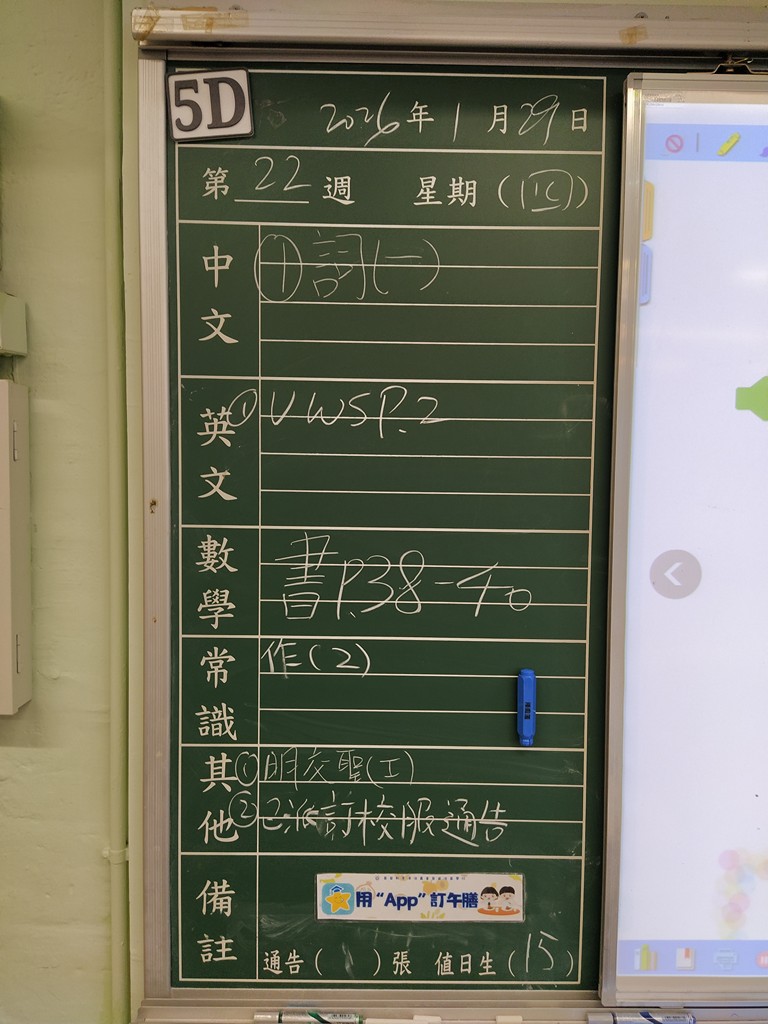 5D
2026年1月29日
第22週 星期(四)
中文
①詞(一)
英文
① VWS P.2
數學
書P.38-40
常識
作(2)
其他
①明交聖(工)
②已派訂校服通告
備註
用“App”訂午膳
通告( )張 值日生(15)